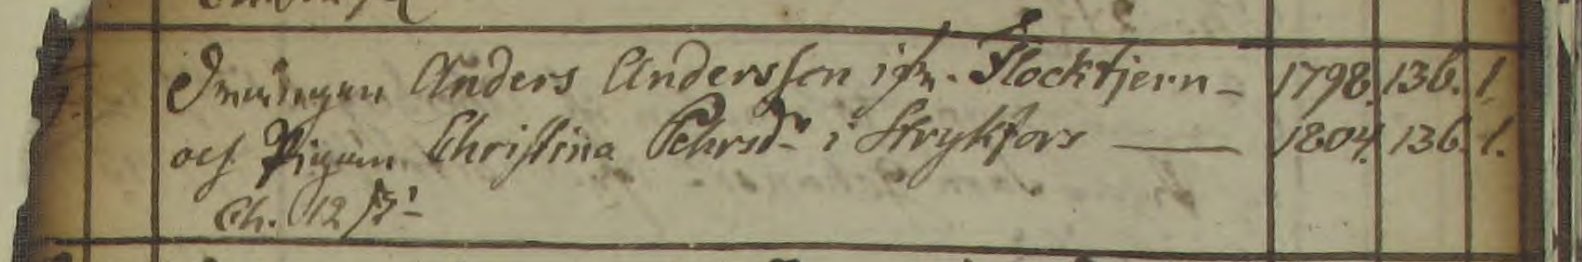 Drängen Anders Andersson ifr. Flocktjern – 1798. 136. 1.
och Pigan Christina Pehrsdr i Strykfors — 1804. 136. 1.
Ch. 12